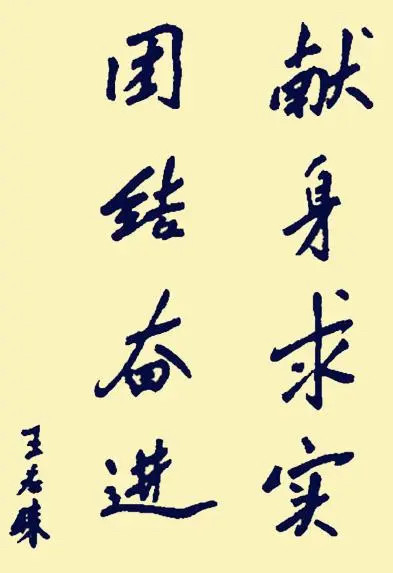 献身求实
团结奋进
王